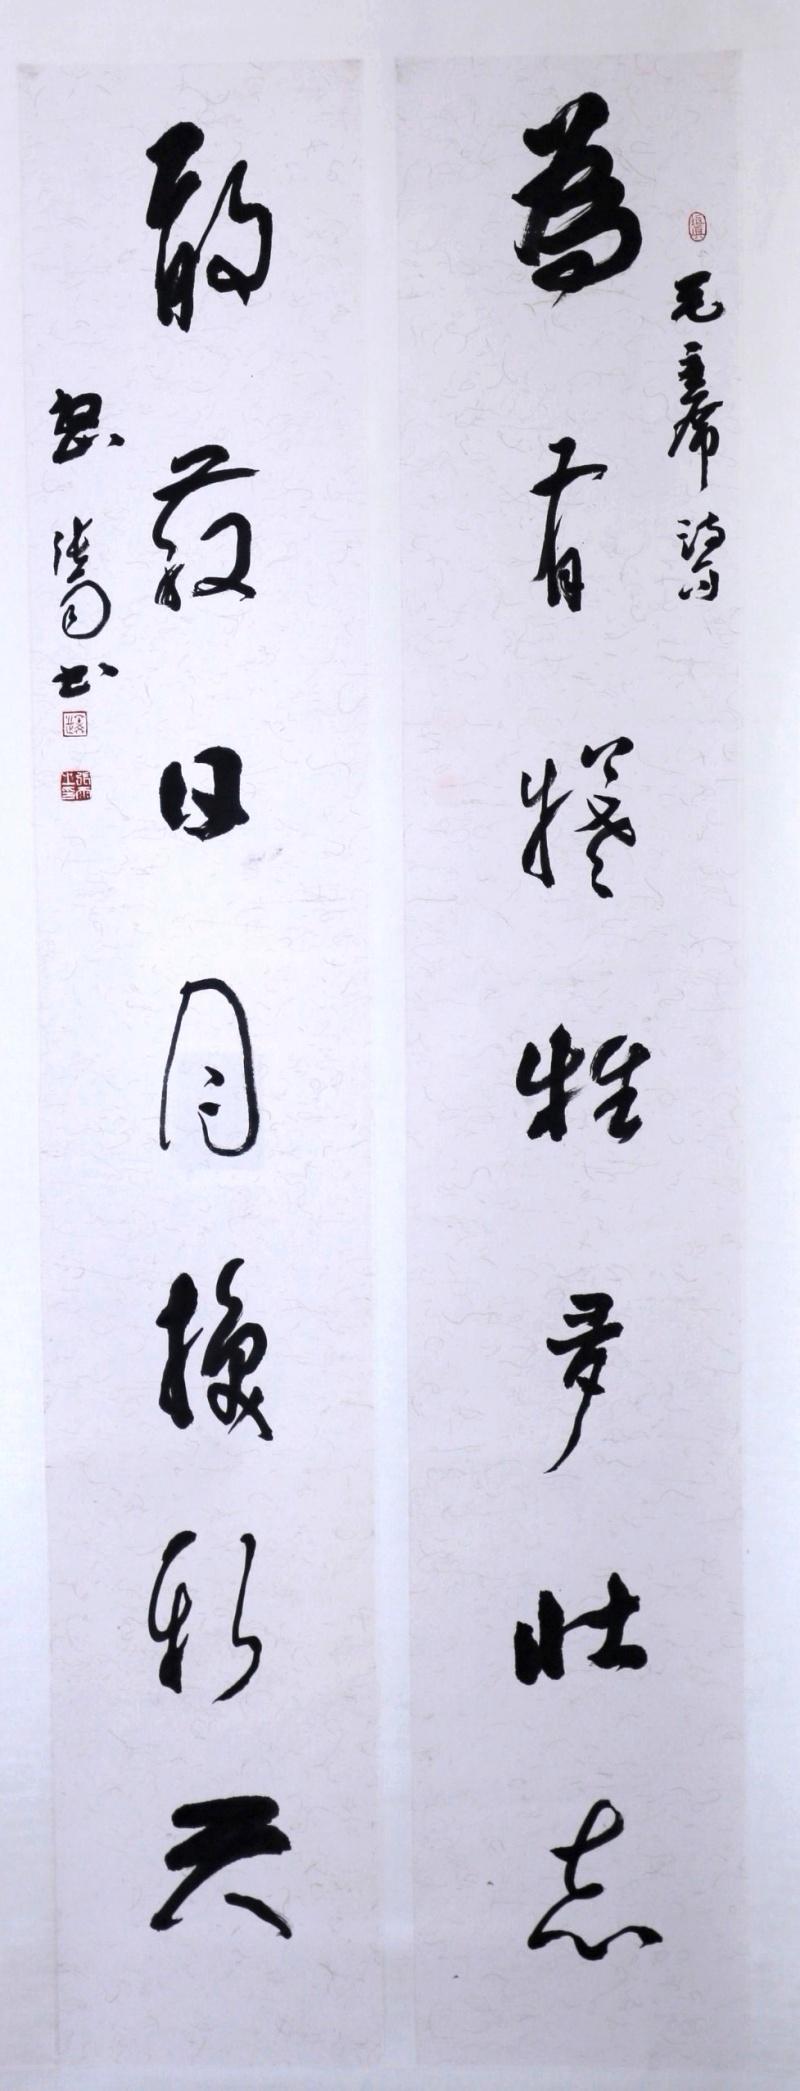 毛主席詩句
為有犧牲多壯志
敢教日月換新天
張
書